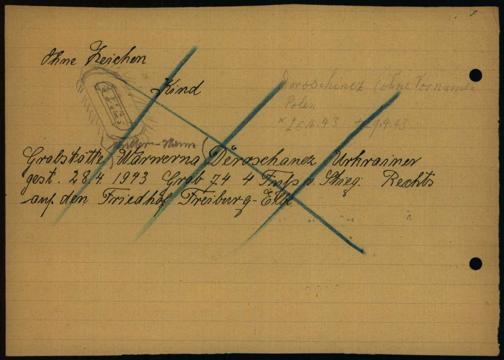 Ohne Zeichen
Kind
Doroschinez (ohne Vornamen)
Polen
Grabstätte Warwerna Deroschanez Uhrainer
gest. 28 4 1943 Grab 74 4 Stieg. Rechts
auf den Friedhof Freiburg-Elbe